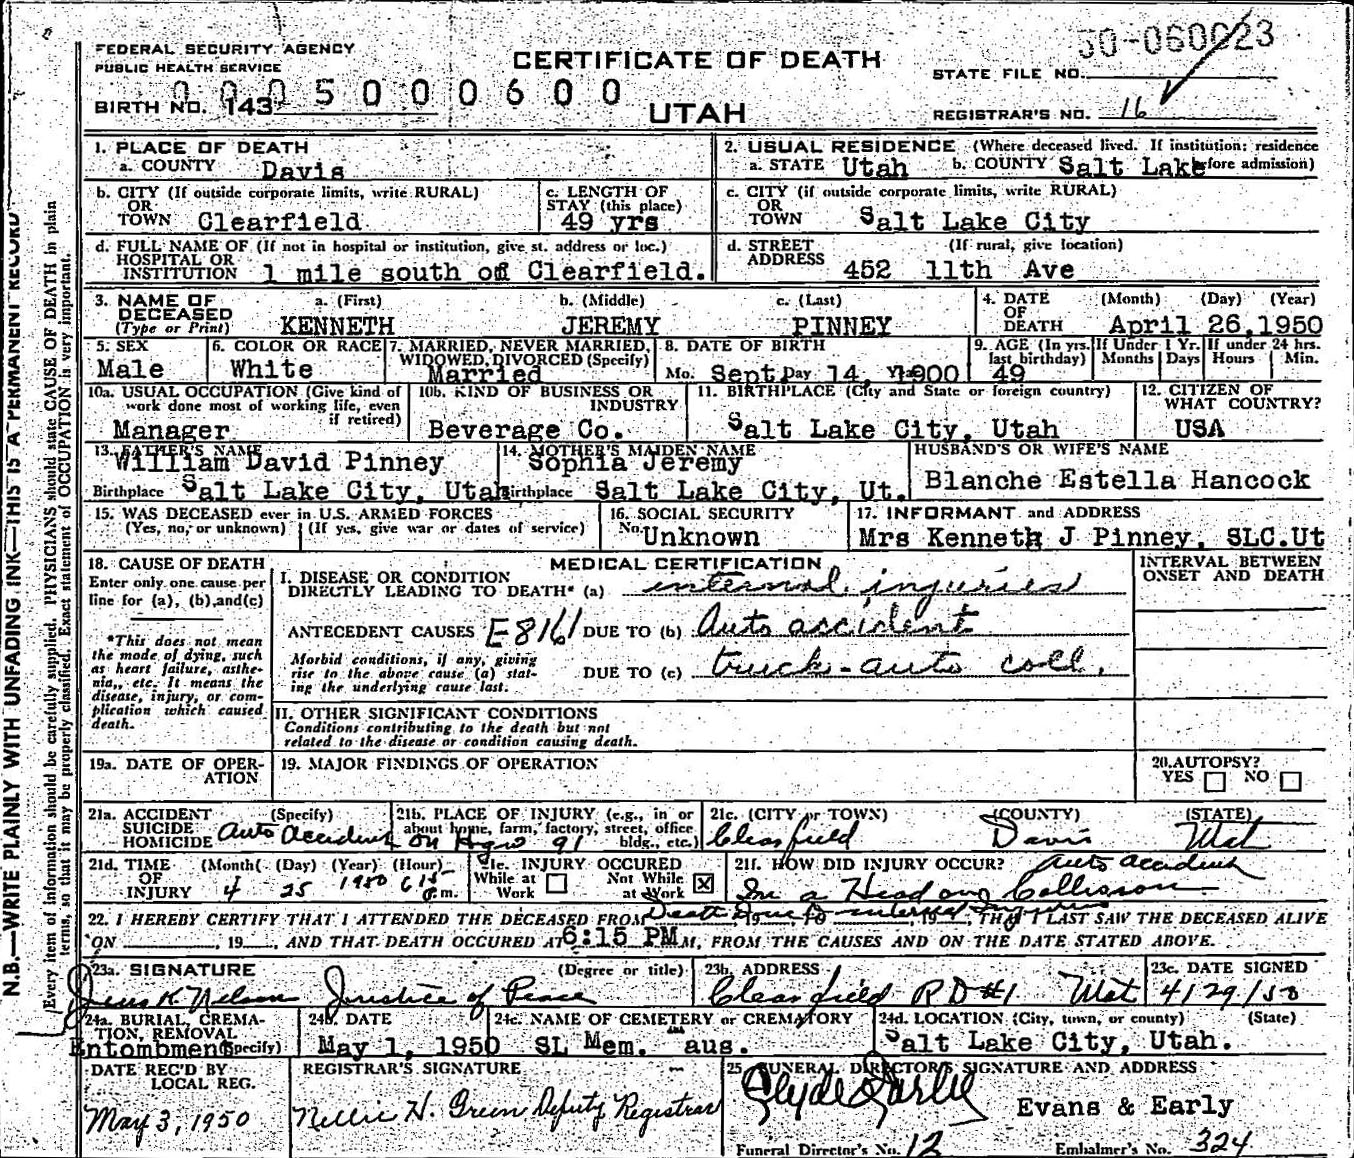 FEDERAL SECURITY AGENCY
PUBLIC HEALTH SERVICE
CERTIFICATE OF DEATH
50-060023
STATE FILE NO.
0 0 0 5 0 0 0 6 0 0
BIRTH NO. 143
UTAH
REGISTRAR'S NO. 16
1. PLACE OF DEATH
a. COUNTY Davis
2. USUAL RESIDENCE (Where deceased lived. If institution: residence before admission)
a. STATE Utah b. COUNTY Salt Lake
b. CITY (If outside corporate limits, write RURAL)
OR
TOWN Clearfield
c. LENGTH OF
STAY (this place)
49 yrs
c. CITY (if outside corporate limits, write RURAL)
OR
TOWN Salt Lake City
d. FULL NAME OF (If not in hospital or institution, give st. address or loc.)
HOSPITAL OR
INSTITUTION 1 mile south of Clearfield.
d. STREET (If rural, give location)
ADDRESS 452 11th Ave
3. NAME OF DECEASED
(Type or Print)
a. (First) b. (Middle) c. (Last)
KENNETH JEREMY PINNEY
4. DATE OF DEATH (Month) (Day) (Year)
April 26,1950
5. SEX
Male
6. COLOR OR RACE
White
7. MARRIED, NEVER MARRIED,
WIDOWED, DIVORCED (Specify)
Married
8. DATE OF BIRTH
Mo. Sept Day 14, Yr. 1900
9. AGE (In yrs. last birthday) 49
If Under 1 Yr. Months Days
If under 24 hrs. Hours Min.
10a. USUAL OCCUPATION (Give kind of
work done most of working life, even
if retired)
Manager
10b. KIND OF BUSINESS OR
INDUSTRY
Beverage Co.
11. BIRTHPLACE (City and State or foreign country)
Salt Lake City, Utah
12. CITIZEN OF
WHAT COUNTRY?
USA
13. FATHER'S NAME
William David Pinney
Birthplace Salt Lake City, Utah
14. MOTHER'S MAIDEN NAME
Sophia Jeremy
Birthplace Salt Lake City, Ut.
HUSBAND'S OR WIFE'S NAME
Blanche Estella Hancock
15. WAS DECEASED ever in U.S. ARMED FORCES
(Yes, no, or unknown) (If yes, give war or dates of service)
16. SOCIAL SECURITY
No. Unknown
17. INFORMANT and ADDRESS
Mrs Kenneth J Pinney, SLC.Ut
18. CAUSE OF DEATH
Enter only one cause per
line for (a), (b), and (c)
*This does not mean
the mode of dying, such
as heart failure, asthe-
nia, etc. It means the
disease, injury, or com-
plication which caused
death.
MEDICAL CERTIFICATION
INTERVAL BETWEEN
ONSET AND DEATH
I. DISEASE OR CONDITION
DIRECTLY LEADING TO DEATH* (a) internal injuries
ANTECEDENT CAUSES E8161 DUE TO (b) Auto accident
Morbid conditions, if any, giving
rise to the above cause (a) stat-
ing the underlying cause last.
DUE TO (c) truck-auto coll.
II. OTHER SIGNIFICANT CONDITIONS
Conditions contributing to the death but not
related to the disease or condition causing death.
19a. DATE OF OPER-
ATION
19. MAJOR FINDINGS OF OPERATION
20. AUTOPSY?
YES NO
21a. ACCIDENT (Specify)
SUICIDE
HOMICIDE Auto Accident
21b. PLACE OF INJURY (e.g., in or
about home, farm, factory, street, office
bldg., etc.)
on Hgw 91
21c. (CITY or TOWN) (COUNTY) (STATE)
Clearfield Davis Utah
21d. TIME OF INJURY (Month) (Day) (Year) (Hour)
4 25 1950 6 15 p.m.
21e. INJURY OCCURED
While at Work Not While at Work X
21f. HOW DID INJURY OCCUR? Auto accident
In a Head on Collision
22. I HEREBY CERTIFY THAT I ATTENDED THE DECEASED FROM Death Due to internal Injuries, 19, THAT I LAST SAW THE DECEASED ALIVE
ON , 19 , AND THAT DEATH OCCURED AT 6:15 PM M, FROM THE CAUSES AND ON THE DATE STATED ABOVE.
23a. SIGNATURE (Degree or title)
K Nelson Justice of Peace
23b. ADDRESS
Clearfield R D #1 Utah
23c. DATE SIGNED
4/29/50
24a. BURIAL, CREMA-
TION, REMOVAL
(Specify)
Entombment
24b. DATE
May 1, 1950
24c. NAME OF CEMETERY or CREMATORY
SL Mem. aus.
24d. LOCATION (City, town, or county) (State)
Salt Lake City, Utah.
DATE REC'D BY
LOCAL REG.
May 3, 1950
REGISTRAR'S SIGNATURE
Nellie H. Green Deputy Registrar
25. FUNERAL DIRECTOR'S SIGNATURE AND ADDRESS
Clyde Early
Evans & Early
Funeral Director's No. 12
Embalmer's No. 324
N.B.—WRITE PLAINLY WITH UNFADING INK—THIS IS A PERMANENT RECORD
Every item of information should be carefully supplied. PHYSICIANS should state CAUSE OF DEATH in plain
terms, so that it may be properly classified. Exact statement of OCCUPATION is very important.